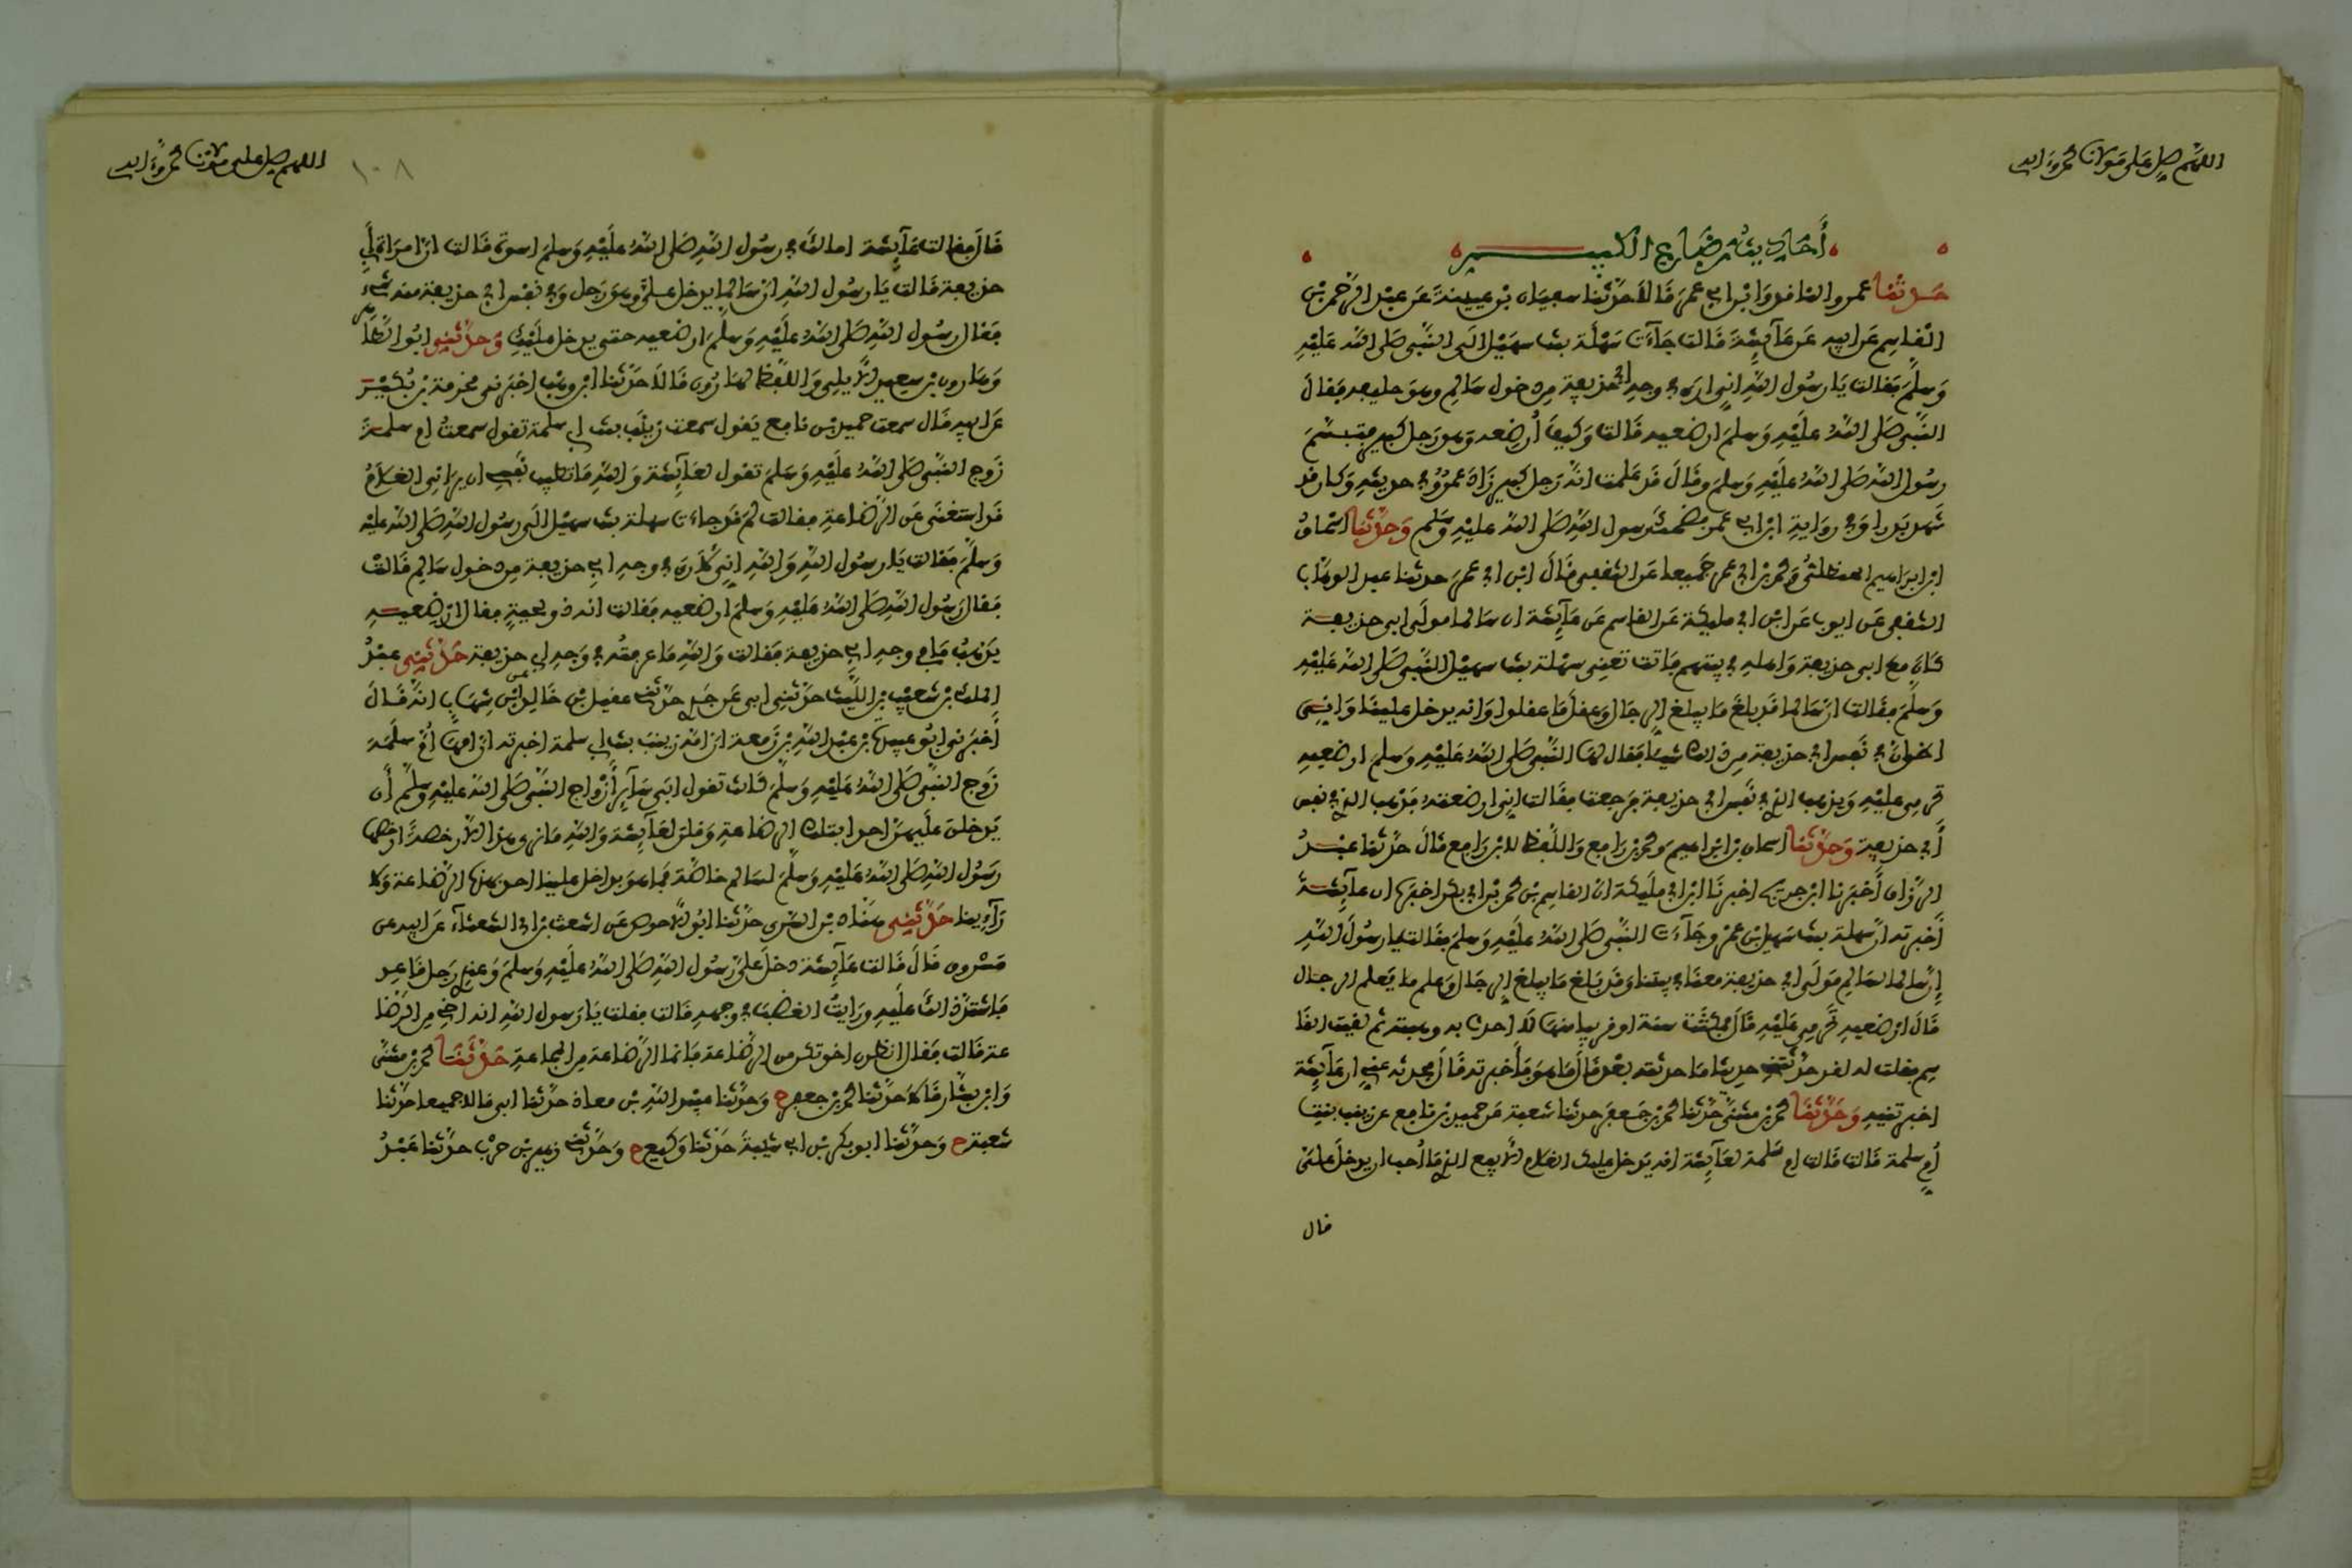 اللهم صل على مولانا محمد وءاله
أحاديث رضاع الكبير
حدثنا عمرو الناقد وابن ابي عمر قالا حدثنا سفيان بن عيينة عن عبد الرحمن بن
القاسم عن ابيه عن عآئشة قالت جآءت سهلة بنت سهيل الى النبي صلى الله عليه
وسلم فقالت يا رسول الله اني ارى في وجه ابي حذيفة من دخول سالم وهو حليفه فقال
النبي صلى الله عليه وسلم ارضعيه قالت وكيف أرضعه وهو رجل كبير فتبسم
رسول الله صلى الله عليه وسلم وقال قد علمت انه رجل كبير زاد عمرو في حديثه وكان قد
شهد بدرا وفي رواية ابن ابي عمر فضحك رسول الله صلى الله عليه وسلم وحدثنا اسحاق
ابن ابراهيم الحنظلي ومحمد بن ابي عمر جميعا عن الثقفي قال ابن ابي عمر حدثنا عبد الوهاب
الثقفي عن ايوب عن ابن ابي مليكة عن القاسم عن عآئشة ان سالما مولى ابي حذيفة
كان مع ابي حذيفة واهله في بيتهم فاتت تعني سهلة بنت سهيل النبي صلى الله عليه
وسلم فقالت ان سالما قد بلغ ما يبلغ الرجال وعقل ما عقلوا وانه يدخل علينا واني
اظن ان في نفس ابي حذيفة من ذلك شيئا فقال لها النبي صلى الله عليه وسلم ارضعيه
تحرمي عليه ويذهب الذي في نفس ابي حذيفة فرجعت فقالت اني ارضعته فذهب الذي في نفس
أبي حذيفة وحدثنا اسحاق بن ابراهيم ومحمد بن رافع واللفظ لابن رافع قال حدثنا عبد
الرزاق أخبرنا ابن جريج اخبرنا ابن ابي مليكة ان القاسم بن محمد بن ابي بكر اخبره ان عآئشة
أخبرته ان سهلة بنت سهيل بن عمرو جآءت النبي صلى الله عليه وسلم فقالت يا رسول الله
إن سالما لسالم مولى ابي حذيفة معنا في بيتنا وقد بلغ ما يبلغ الرجال وعلم ما يعلم الرجال
قال ارضعيه تحرمي عليه قال فمكثت سنة او قريبا منها لا احدث به وهبته ثم لقيت القا
سم فقلت له لقد حدثتني حديثا ما حدثته بعد قال ما هو فأخبرته قال فحدثه عني ان عآئشة
اخبرتنيه وحدثنا محمد بن مثنى حدثنا محمد بن جعفر حدثنا شعبة عن حميد بن نافع عن زينب بنت
أم سلمة قالت قالت ام سلمة لعآئشة انه يدخل عليك الغلام الايفع الذي ما أحب ان يدخل علي
قال
اللهم صل على مولانا محمد وءاله
١٠٨
قال فقالت عآئشة امالك في رسول الله صلى الله عليه وسلم اسوة قالت ان امراة ابي
حذيفة قالت يا رسول الله ان سالما يدخل علي وهو رجل وفي نفس ابي حذيفة منه شيء
فقال رسول الله صلى الله عليه وسلم ارضعيه حتى يدخل عليك وحدثني ابو الطاهر
وهارون بن سعيد الايلي واللفظ لهارون قالا حدثنا ابن وهب اخبرني مخرمة بن بكير
عن ابيه قال سمعت حميد بن نافع يقول سمعت زينب بنت ابي سلمة تقول سمعت ام سلمة
زوج النبي صلى الله عليه وسلم تقول لعآئشة والله ما تطيب نفسي ان يراني الغلام
قد استغنى عن الرضاعة فقالت لم قد جاءت سهلة بنت سهيل الى رسول الله صلى الله عليه
وسلم فقالت يا رسول الله والله اني لارى في وجه ابي حذيفة من دخول سالم قالت
فقال رسول الله صلى الله عليه وسلم ارضعيه فقالت انه ذو لحية فقال ارضعيه
يذهب ما في وجه ابي حذيفة فقالت والله ما عرفته في وجه ابي حذيفة حدثني عبد
الملك بن شعيب بن الليث حدثني ابي عن جدي حدثني عقيل بن خالد عن ابن شهاب انه قال
أخبرني ابو عبيدة بن عبد الله بن زمعة ان امه زينب بنت ابي سلمة اخبرته ان امها ام سلمة
زوج النبي صلى الله عليه وسلم كانت تقول ابى سآئر أزواج النبي صلى الله عليه وسلم أن
يدخلن عليهن احدا بتلك الرضاعة وقلن لعآئشة والله ما نرى هذا الا رخصة ارخصها
رسول الله صلى الله عليه وسلم لسالم خاصة فما هو بداخل علينا احد بهذه الرضاعة ولا
رآءينا حدثني هناد بن السري حدثنا ابو الاحوص عن اشعث بن ابي الشعثآء عن ابيه عن
مسروق قال قالت عآئشة دخل علي رسول الله صلى الله عليه وسلم وعندي رجل قاعد
فاشتد ذلك عليه ورايت الغضب في وجهه قالت فقلت يا رسول الله انه اخي من الرضا
عة قالت فقال انظرن اخوتكن من الرضاعة فانما الرضاعة من المجاعة حدثنا محمد بن مثنى
وابن بشار قالا حدثنا محمد بن جعفر ح وحدثنا عبيد الله بن معاذ حدثنا ابي قالا جميعا حدثنا
شعبة ح وحدثنا ابو بكر بن ابي شيبة حدثنا وكيع ح وحدثني زهير بن حرب حدثنا عبد